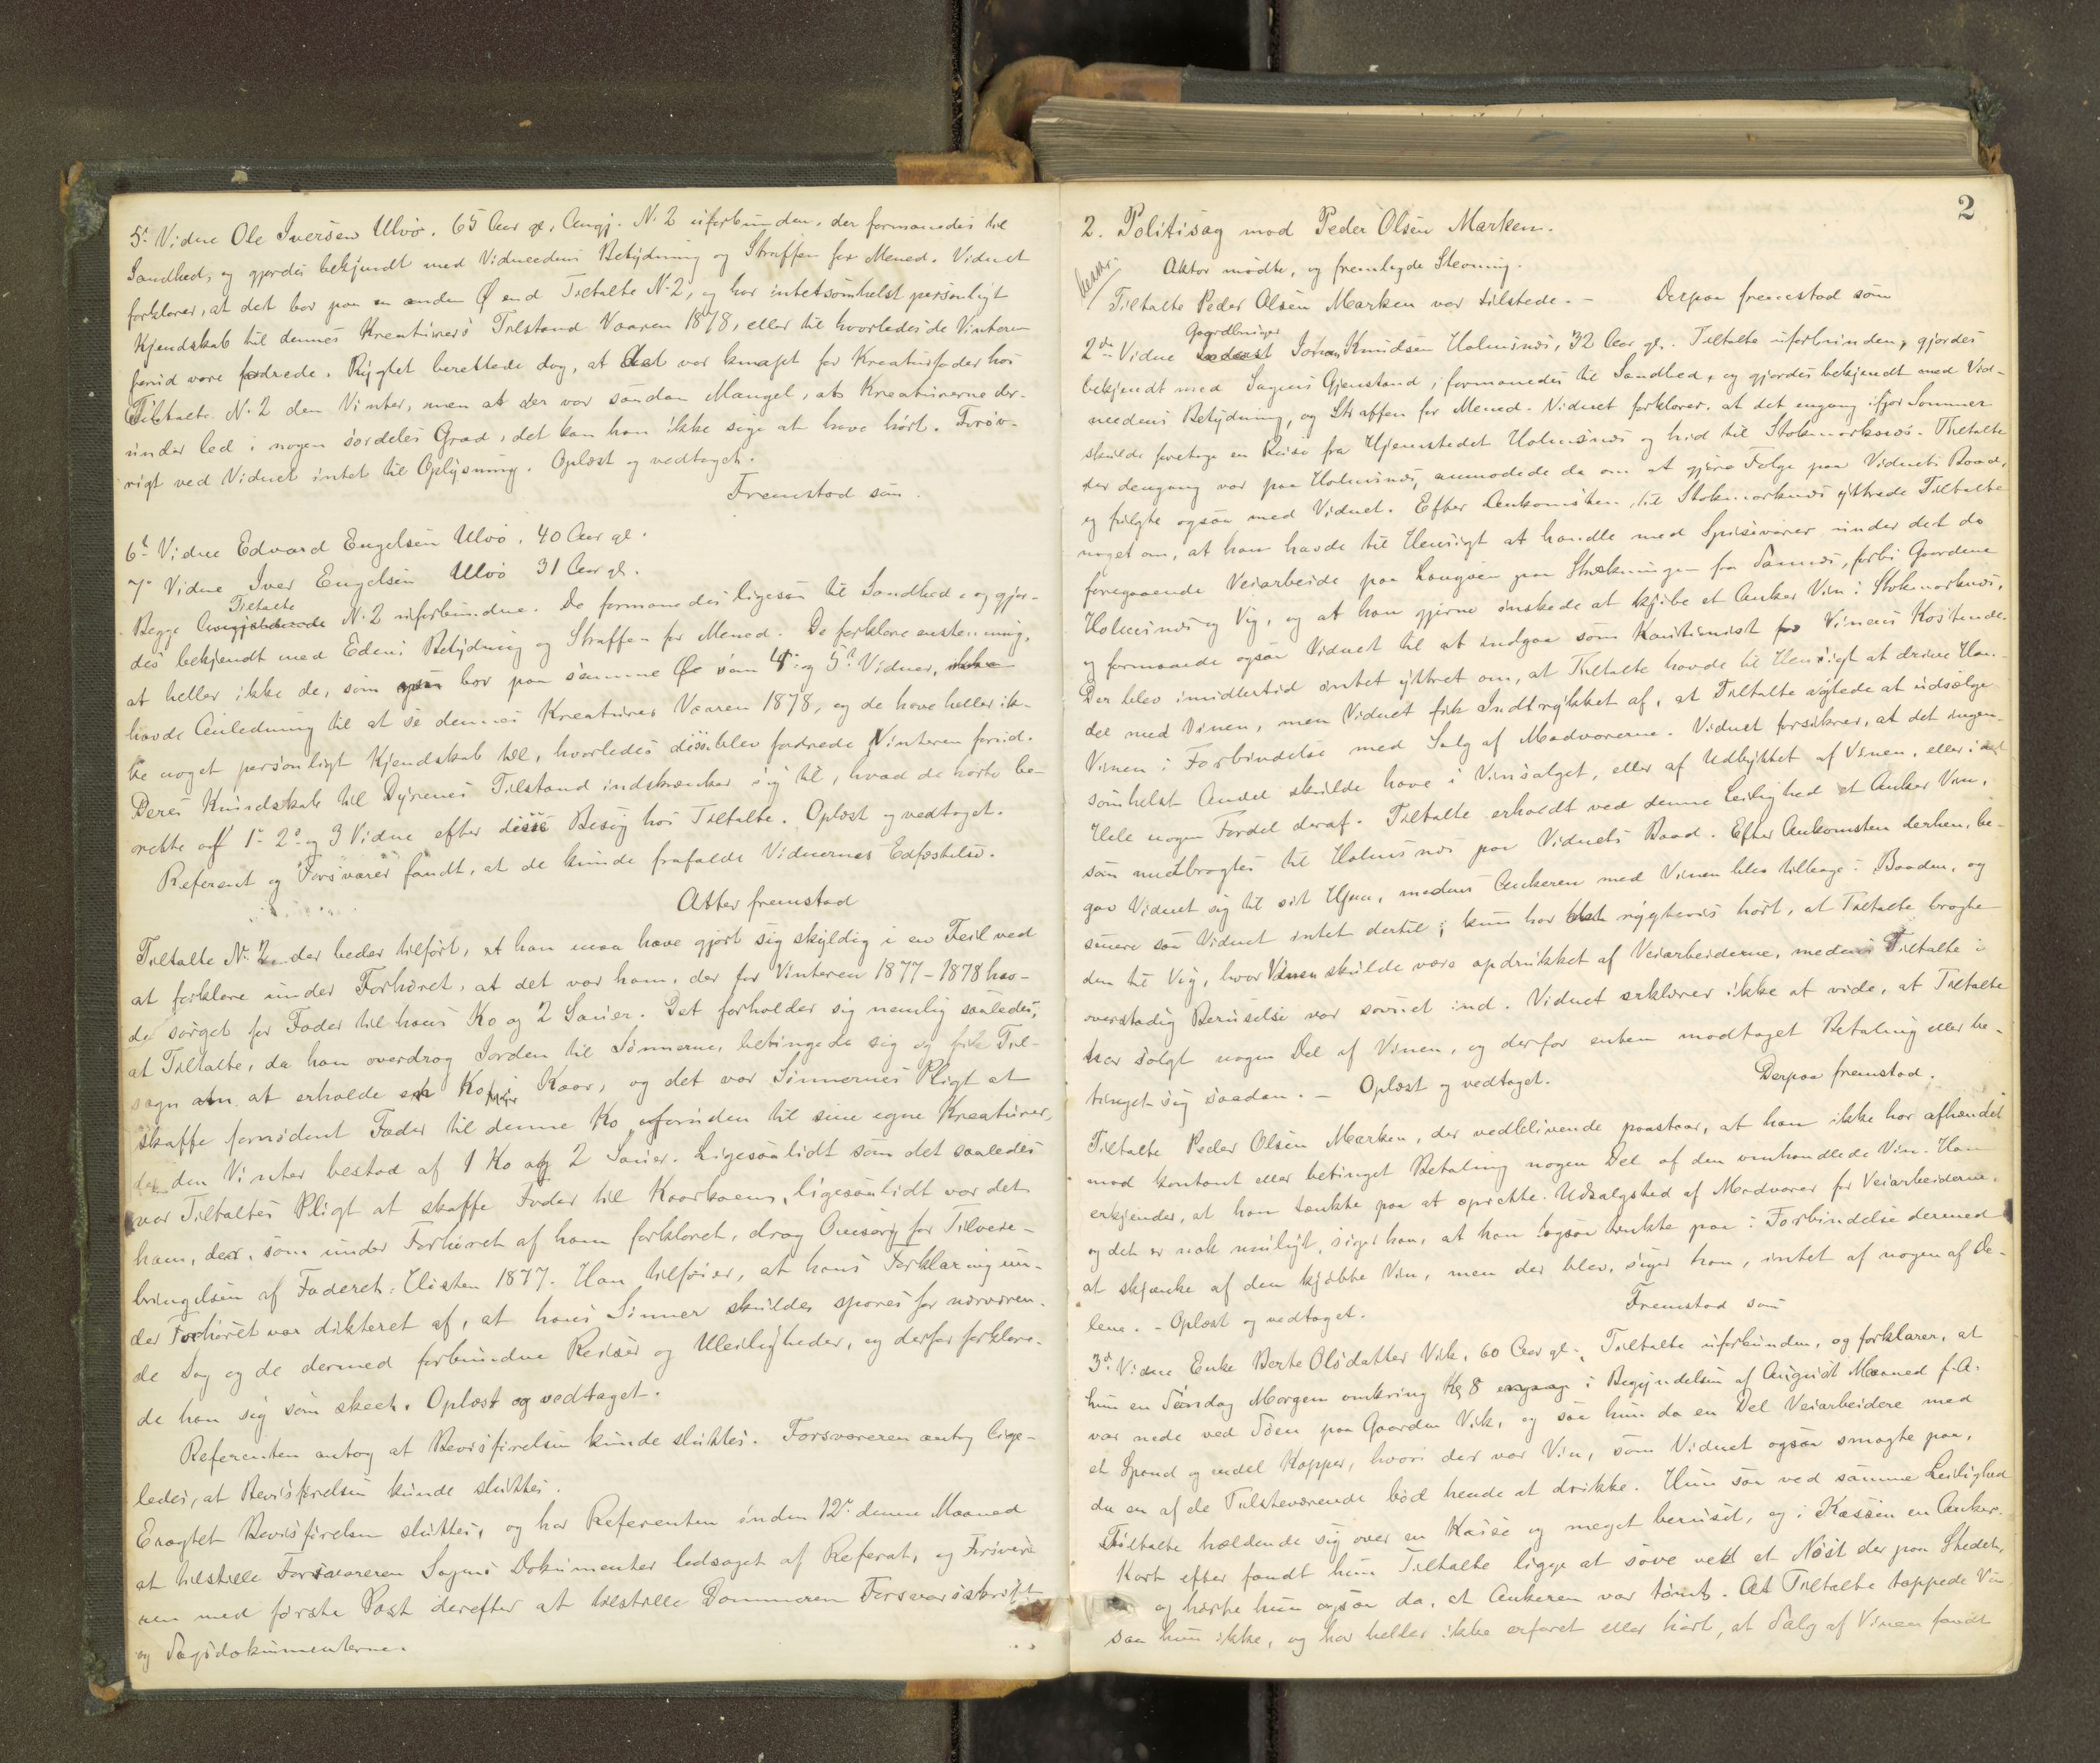 5te Vidne Ole Iversen Ulvø. 65 Aar gl, Angj. N. 2 uforbunden, der formanedes til
Sandhed, og gjordes bekjendt med Vidneedens Betydning og Straffen for Mened. Vidnet
forklarer, at det bor paa en anden Ø end Tiltalte N. 2, og har intetsomhelst personligt
Kjendskab til dennes Kreaturers Tilstand Vaaren 1878, eller til hvorledes de Vinteren
forud vare fodrede. Rygtet berettede dog, at det var knapt for Kreaturfoder hos
Tiltalte N. 2 den Vinter, men at der var saadan Mangel, at Kreaturerne der-
under led i nogen særdeles Grad, det kan han ikke sige at have hørt. Forøv-
rigt ved Vidnet intet til Oplysning. Oplæst og vedtaget.
Fremstod som
6te Vidne Edvard Engelsen Ulvø, 40 Aar gl.
7de Vidne Iver Engelsen Ulvø 31 Aar gl.
Tiltalte
Begge N. 2 uforbundne. De formanedes ligesaa til Sandhed, og gjor-
des bekjendt med Edens Betydning og Straffen for Mened. De forklare enstemmig,
at heller ikke de, som bor paa samme Ø som 4de og 5te Vidner, ikke
havde Anledning til at se dennes Kreaturer Vaaren 1878, og de have heller ik-
ke noget personligt Kjendskab til, hvorledes disse blev fodrede Vinteren forud.
Deres Kundskab til Dyrenes Tilstand indskrænker sig til, hvad de hørte be-
rette af 1ste 2det og 3 Vidne efter disses Besøg hos Tiltalte. Oplæst og vedtaget.
Referent og Forsvarer fandt, at de kunde frafalde Vidnernes Edfæstelse.
Atter fremstod
Tiltalte Nr. 2 der beder tilført, at han maa have gjort sig skyldig i en Feil ved
at forklare under Forhøret, at det var ham, der for Vinteren 1877-1878 hav-
de sørget for Foder til hans Ko og 2 Sauer. Det forholder sig nemlig saaledes,
at Tiltalte, da han overdrog Jorden til Sønnerne, betingede sig og fik Til-
sagn om at erholde en Ko i Kaar, og det var Sønnernes Pligt at
skaffe fornødent Foder til denne Ko foruden til sine egne Kreaturer,
der den Vinter bestod af 1 Ko og 2 Sauer. Ligesaalidt som det saaledes
var Tiltaltes Pligt at skaffe Foder til Kaarkoen, ligesaalidt var det
ham, der, som under Forhøret af ham forklaret, drog Omsorg for Tilveie-
bringelsen af Foderet Høsten 1877. Han tilføier, at hans Forklaring un-
der Forhøret var dikteret af, at hans Sønner skulde spares for nærværen-
de Sag og de dermed forbundne Reiser og Uleiligheder, og derfor forklare-
de han sig som skeet. Oplæst og vedtaget.
Referenten antog at Bevisførelsen kunde sluttes. Forsvareren antog lige-
ledes, at Bevisførelsen kunde sluttes.
Eragtet Bevisførelsen sluttes, og har Referenten inden 12te denne Maaned
at tilstille Forsvareren Sagens Dokumenter ledsaget af Referat, og Forsvare-
ren med første Post derefter at tilstille Dommeren Forsvarsskrift
og Sagsdokumenterne.
2
2. Politisag mod Peder Olsen Marken.
Aktor mødte, og fremlagde Stevning.
Tiltalte Peder Olsen Marken var tilstede. - Derpaa fremstod som
Gaardbruger
2det Vidne Johan Knudsen Holmsnæs, 32 Aar gl. Tiltalte uforbunden, gjordes
bekjendt med Sagens Gjenstand, formanedes til Sandhed, og gjordes bekjendt med Vid-
needens Betydning, og Straffen for Mened. Vidnet forklarer, at det engang ifjor Sommer
skulde foretage en Reise fra Hjemstedet Holmsnæs og hid til Stokmarknæs. Tiltalte
der dengang var paa Holmsnæs, anmodede da om at gjøre Følge paa Vidnets Baad,
og fulgte ogsaa med Vidnet. Efter Ankomsten til Stokmarknæs yttrede Tiltalte
noget om, at han havde til Hensigt at handle med Spisevarer under det da
foregaaende Veiarbeide paa Langøen paa Strækningen fra Sannæs, forbi Gaardene
Holmsnæs og Vig, og at han gjerne ønskede at kjøbe et Anker Vin i Stokmarknæs,
og formaaede ogsaa Vidnet til at indgaa som Kautionist for Vinens Kostende.
Der blev imidlertid intet yttret om, at Tiltalte havde til Hensigt at drive Han-
del med Vinen, men Vidnet fik Indtrykket af, at Tiltalte agtede at udsælge
Vinen i Forbindelse med Salg af Madvarerne. Vidnet forsikrer, at det ingen-
somhelst Andel skulde have i Vinsalget, eller af Udbyttet af Vinen, eller i det
Hele nogen Fordel deraf. Tiltalte erholdt ved denne Leilighed et Anker Vin,
som medbragtes til Holmsnæs paa Vidnets Baad. Efter Ankomsten derhen, be-
gav Vidnet sig til sit Hjem, medens Ankeren med Vinen blev tilbage i Baaden, og
senere saa Vidnet intet dertil; kun har det rygtevis hørt, at Tiltalte bragte
den til Vig, hvor Vinen skulde være opdrukket af Veiarbeiderne, medens Tiltalte i
overstadig Beruselse var sovnet ind. Vidnet erklærer ikke at vide, at Tiltalte
har solgt nogen Del af Vinen, og derfor enten modtaget Betaling eller be-
tinget sig saadan. - Oplæst og vedtaget. Derpaa fremstod.
Tiltalte Peder Olsen Marken, der vedblivende paastaar, at han ikke har afhændet
mod kontant eller betinget Betaling nogen Del af den omhandlede Vin. Han
erkjender, at han tænkte paa at oprette Udsalgsted af Madvarer for Veiarbeiderne,
og det er nok muligt, siger han, at han ogsaa tænkte paa i Forbindelse dermed
at skjænke af den kjøbte Vin, men der blev, siger han, intet af nogen af De-
lene. - Oplæst og vedtaget. Fremstod som
3die Vidne Enke Berte Olsdatter Vik, 60 Aar gl., Tiltalte uforbunden, og forklarer, at
hun en Søndag Morgen omkring Kl 8 i Begyndelsen af August Maaned f. A.
var nede ved Søen paa Gaarden Vik, og saa hun da en Del Veiarbeidere med
et Spand og endel Kopper, hvori der var Vin, som Vidnet ogsaa smagte paa,
da en af de Tilstedeværende bød hende at drikke. Hun saa ved samme Leilighed
Tiltalte hældende sig over en Kasse og meget beruset, og i Kassen en Anker.
Kort efter fandt hun Tiltalte ligge at sove ved et Nøst der paa Stedet,
og hørte hun ogsaa da, at Ankeren var tømt. At Tiltalte tappede Vin
saa hun ikke, og har heller ikke erfaret eller hørt, at Salg af Vinen fandt